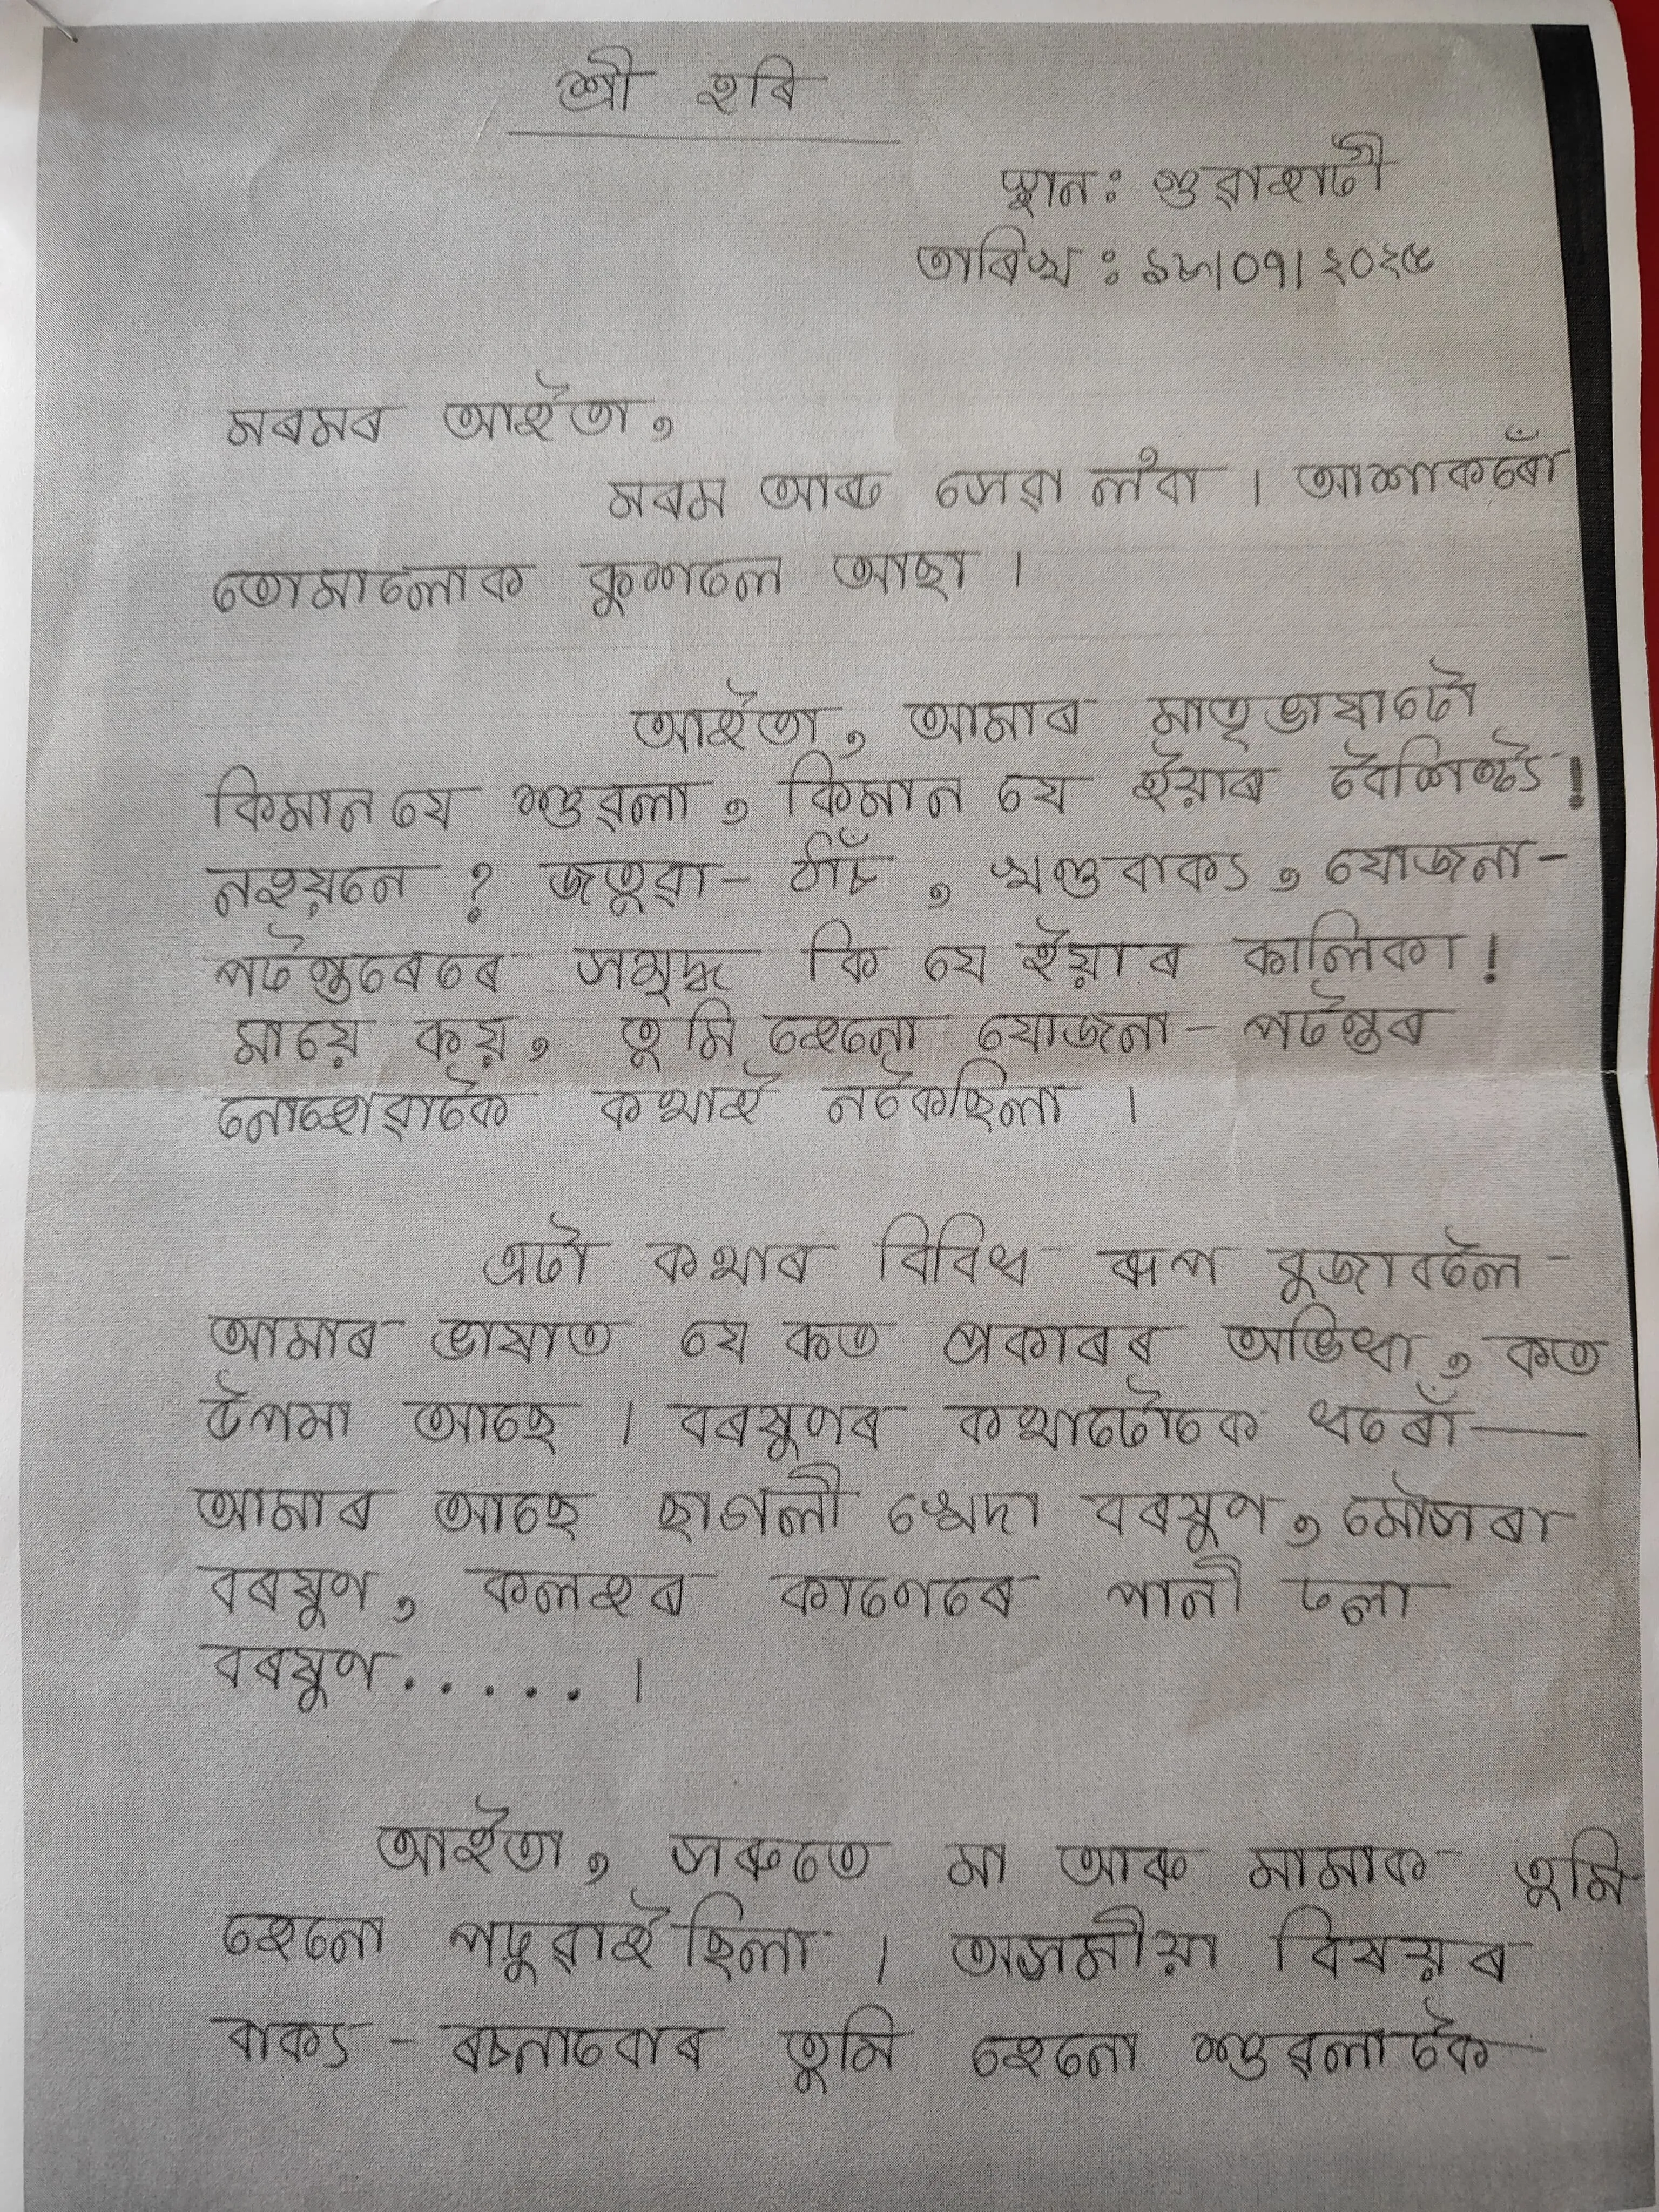 শ্ৰী হৰি
স্থান: গুৱাহাটী
তাৰিখ: ১৮।০৭।২০২৫
মৰমৰ আইতা,
মৰম আৰু সেৱা ল'বা । আশাকৰোঁ
তোমালোক কুশলে আছা ।
আইতা, আমাৰ মাতৃভাষাটো
কিমান যে শুৱলা, কিমান যে ইয়াৰ বৈশিষ্ট্য!
নহয়নে ? জতুৱা- ঠাঁচ, খণ্ডবাক্য, যোজনা-
পটন্তৰেৰে সমৃদ্ধ কি যে ইয়াৰ কালিকা!
মায়ে কয়, তুমি হেনো যোজনা- পটন্তৰ
নোহোৱাকৈ কথাই নকৈছিলা ।
এটা কথাৰ বিবিধ ৰূপ বুজাবলৈ
আমাৰ ভাষাত যে কত প্ৰকাৰৰ অভিধা, কত
উপমা আছে । বৰষুণৰ কথাটোকে ধৰোঁ—
আমাৰ আছে ছাগলী খেদা বৰষুণ, মৌসৰা
বৰষুণ, কলহৰ কাণেৰে পানী ঢলা
বৰষুণ.....।
আইতা, সৰুতে মা আৰু মামাক তুমি
হেনো পঢ়ুৱাইছিলা । অসমীয়া বিষয়ৰ
বাক্য - ৰচনাবোৰ তুমি হেনো শুৱলাকৈ